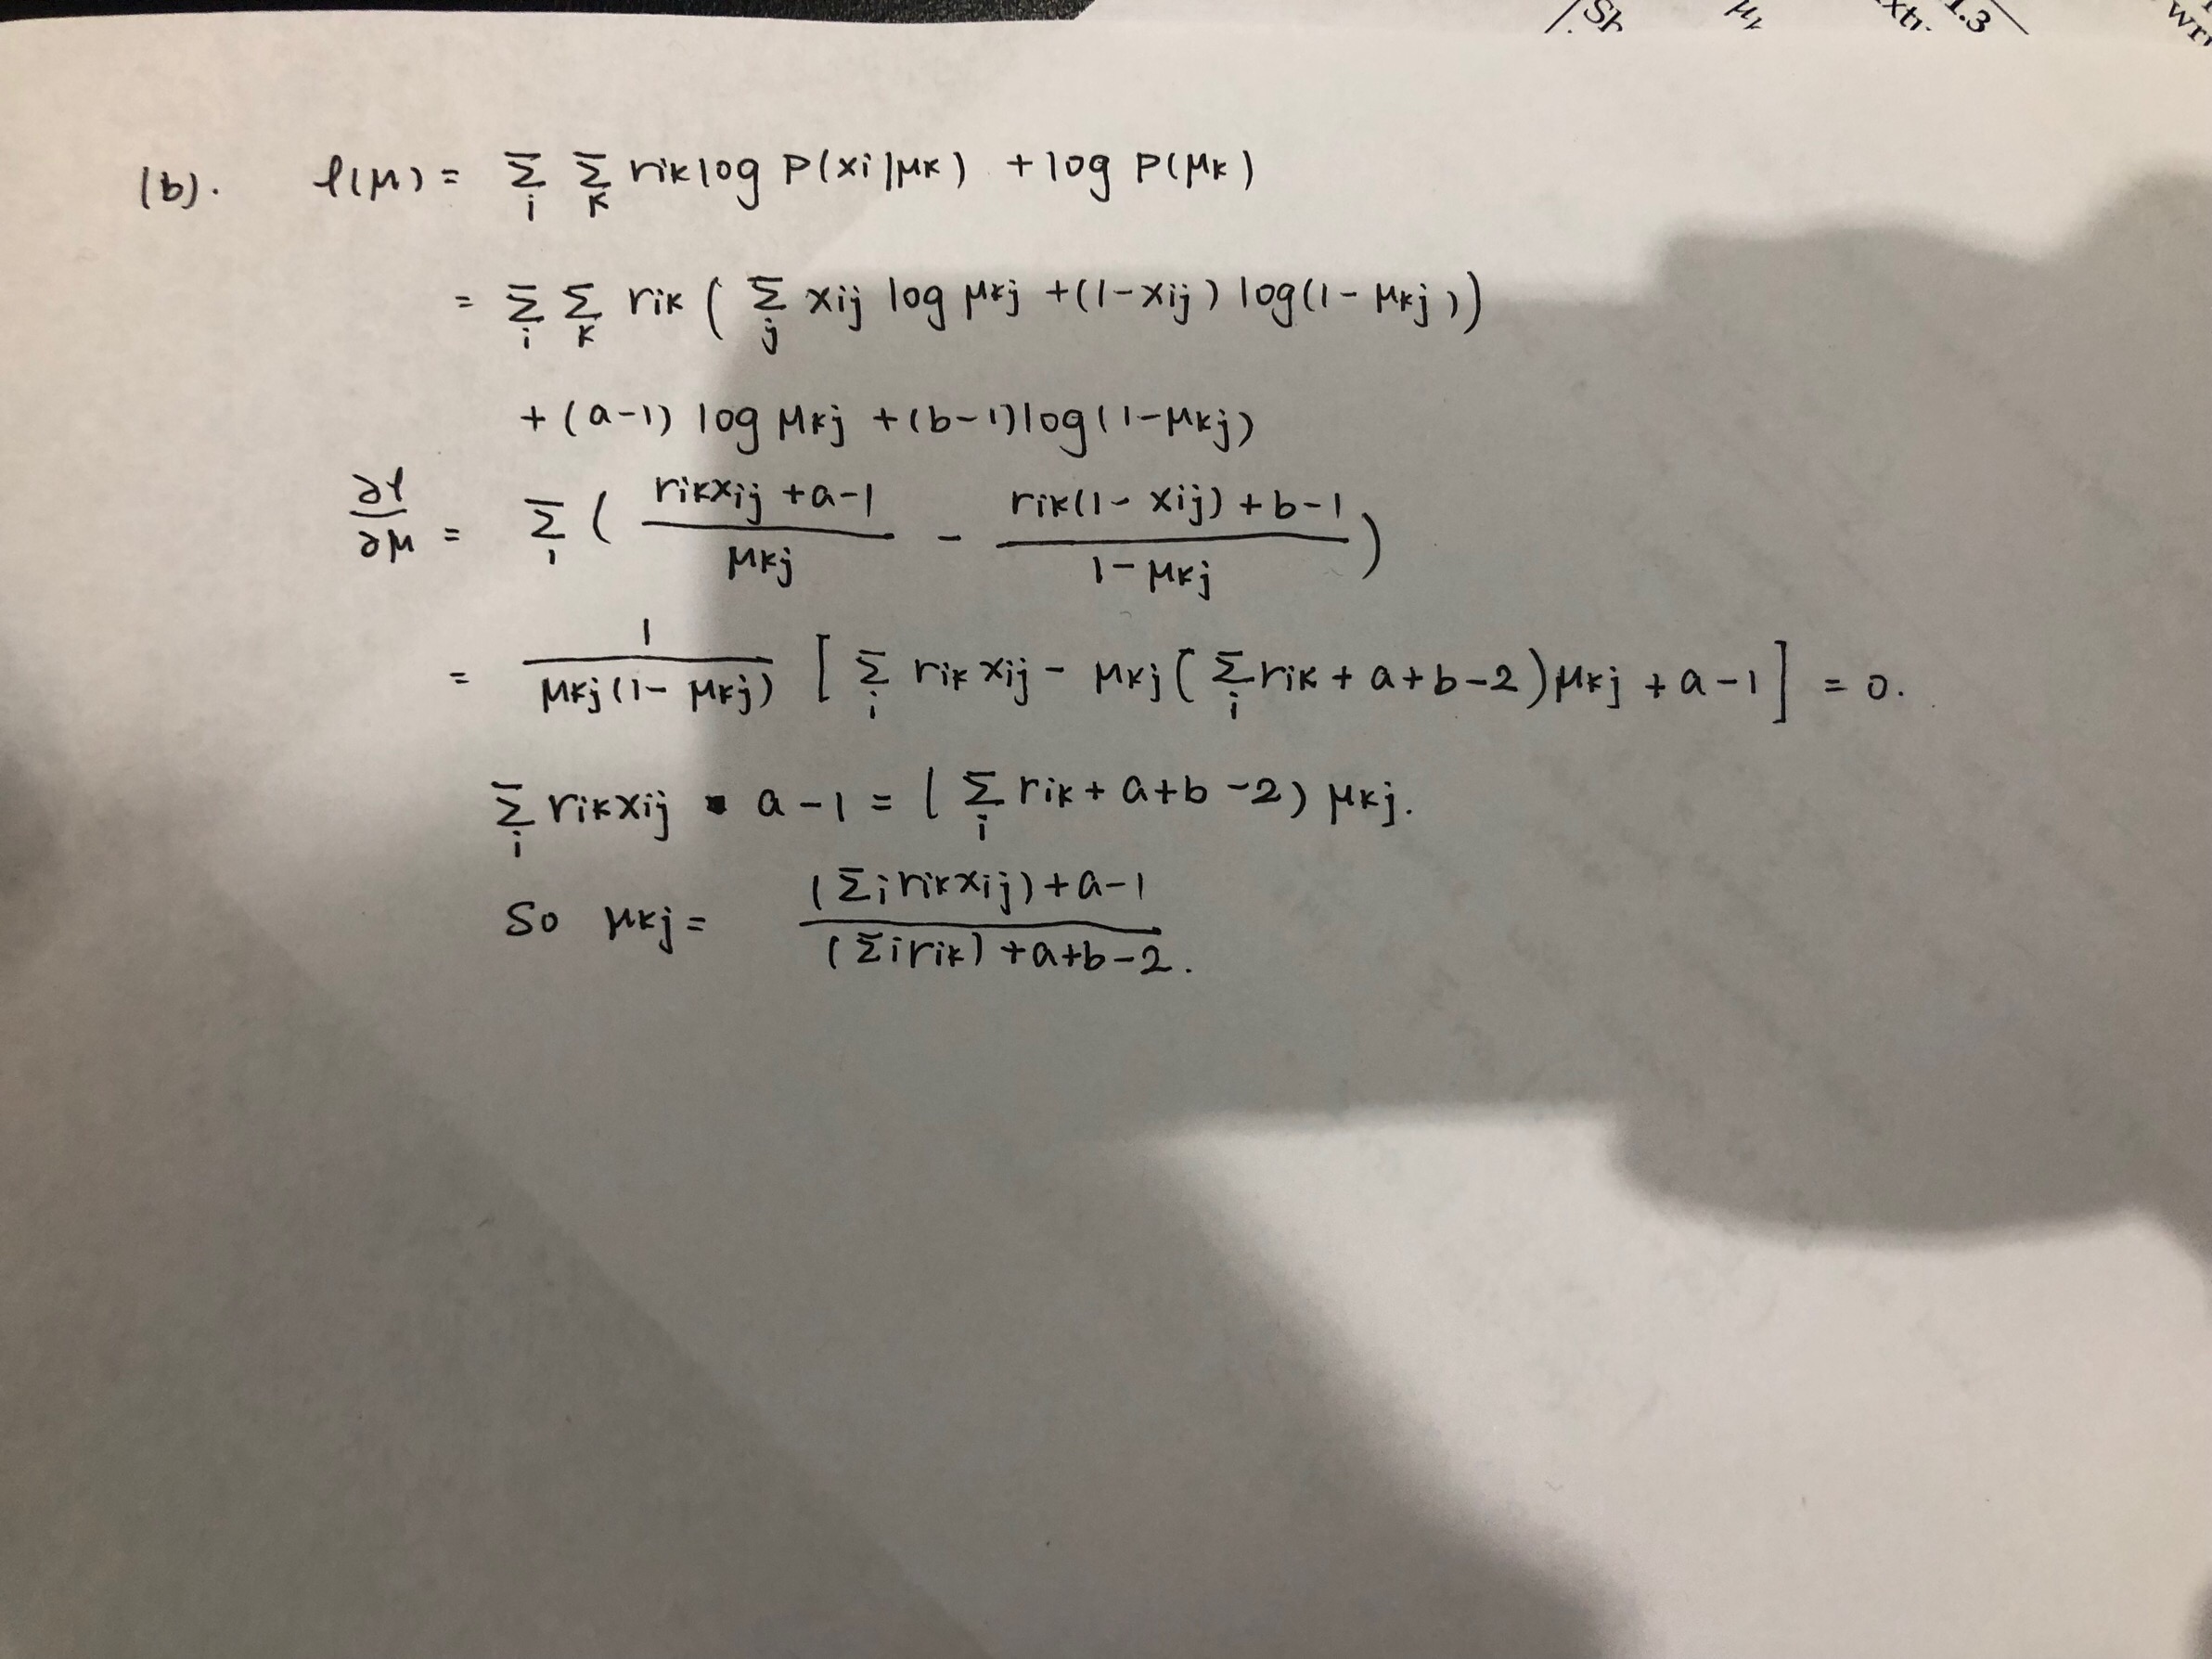 Sh
μk
xtr
1.3
wri
(b). ℓ(μ) = Σ_i Σ_k rik log P(xi|μk) + log P(μk)
= Σ_i Σ_k rik ( Σ_j xij log μkj + (1-xij) log(1-μkj))
+ (a-1) log μkj + (b-1)log(1-μkj)
∂ℓ/∂μ = Σ_i ( (rikxij + a-1)/μkj - (rik(1-xij) + b-1)/(1-μkj) )
= 1/(μkj(1-μkj)) [ Σ_i rik xij - μkj( Σ_i rik + a+b-2)μkj + a-1 ] = 0.
Σ_i rikxij a-1 = ( Σ_i rik + a+b-2) μkj.
So μkj = ((Σi rikxij) + a-1)/((Σi rik) + a+b-2).